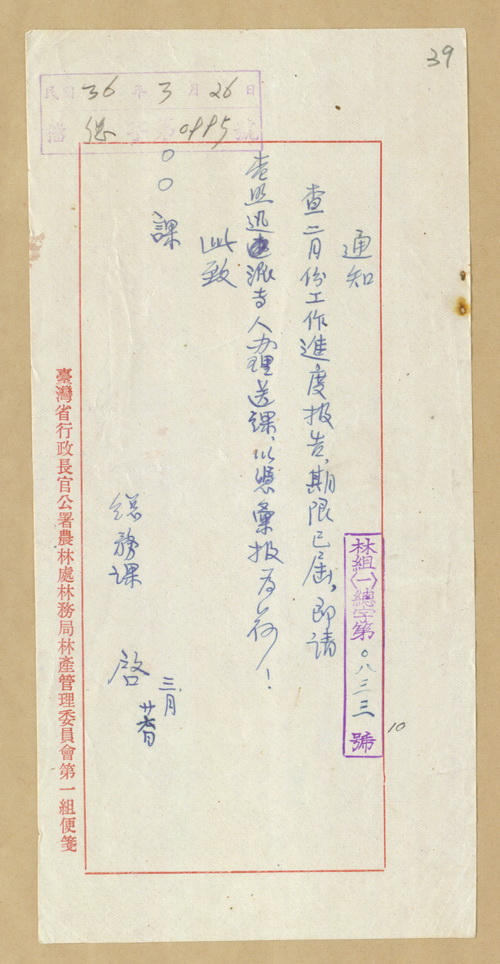 39
民國36年3月26日
檔 總字第
通知
林組(一)總字第〇八三三號
10
查二月份工作進度报告,期限已届,即請
查照迅速派专人办理送課,以憑彙报为荷!
此致
〇〇課
總務課 啓
三月
臺灣省行政長官公署農林處林務局林產管理委員會第一組便箋